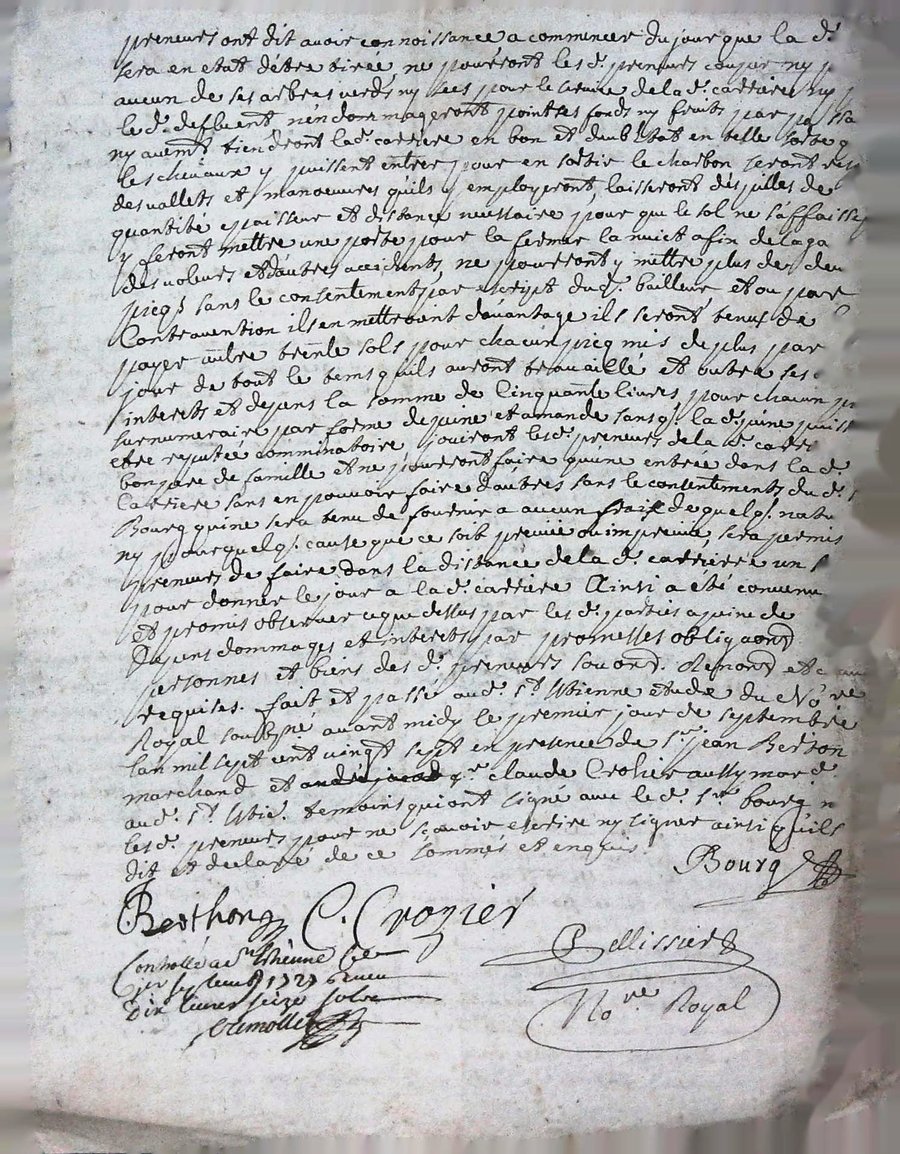 preneurs ont dit avoir connoissance a commencer du jour que la d.
sera en etat d'être tirée, ne pourront les d. preneurs couper ny
aucun de ses arbres verds ny secs pour le service de la d. carriere ny
le d. deffluent n'endommageront point ses fonds ny fruits par
ny avent tiendront la d. carriere en bon et deub état en telle sorte q
les chevaux y puissent entrer pour en sortir le charbon seront
des vallets et manoeuvres quils y employeront, laisseront des pilles de
quantité epaisseur et distance necessaire pour que le sol ne saffaisse
y feront mettre une porte pour la fermer la nuict afin de la ga
des voleurs et d'autres accidents, ne pourront y mettre plus de deu
picqs sans le consentement par escript dud. s. bailleur et ou par
Contravention ils en mettroient davantage ils seront tenus de
payer autre trente sols pour chacun picq mis de plus par
jour de tout le tems quils auront travaillé et outre ses
interets et depens la somme de Cinquante livres pour chacun
surnumeraire par forme de peine et amande sans q. la d. peine puiss
etre reputée comminatoire jouiront les d. preneurs de la d. carri
bon pere de famille et ne pourront faire qu'une entrée dans la d.
Carriere sans en pouvoir faire d'autres sans le consentements du d. s
Bourg qui ne sera tenu de fournir a aucun frais de quelq. natu
ny pour quelq. cause que ce soit preveue ou impreveue, sera permis
preneurs de faire dans la distance de la d. carrierre un
pour donner le jour a la d. carriere Ainsi a eté convenu
et promis observer ce que dessus par les d. parties a peine de
depens dommages et interets par promesses obligaons
personnes et biens des d. preneurs soubons. Renons et c
requises. fait et passé aud. St. Etienne etude du No.re
Royal soubsigné avant midy le premier jour de septembre
lan mil sept cent vingt sept en presence de s.r jean Berton
marchand et s.r claude Crozier aussy mar.d
aud. St. Etie. temoins qui ont signé avec le d. s.r bourg n
les d. preneurs pour ne sçavoir escrire ny signer ainsi quils
dit et declare de ce sommés et enquis.
Bourg
Berthon C. Crozier
Controllé a St Etienne le
1er septembre 1727 Receu
Dix livres seize sols
Pellissier
No.re Royal